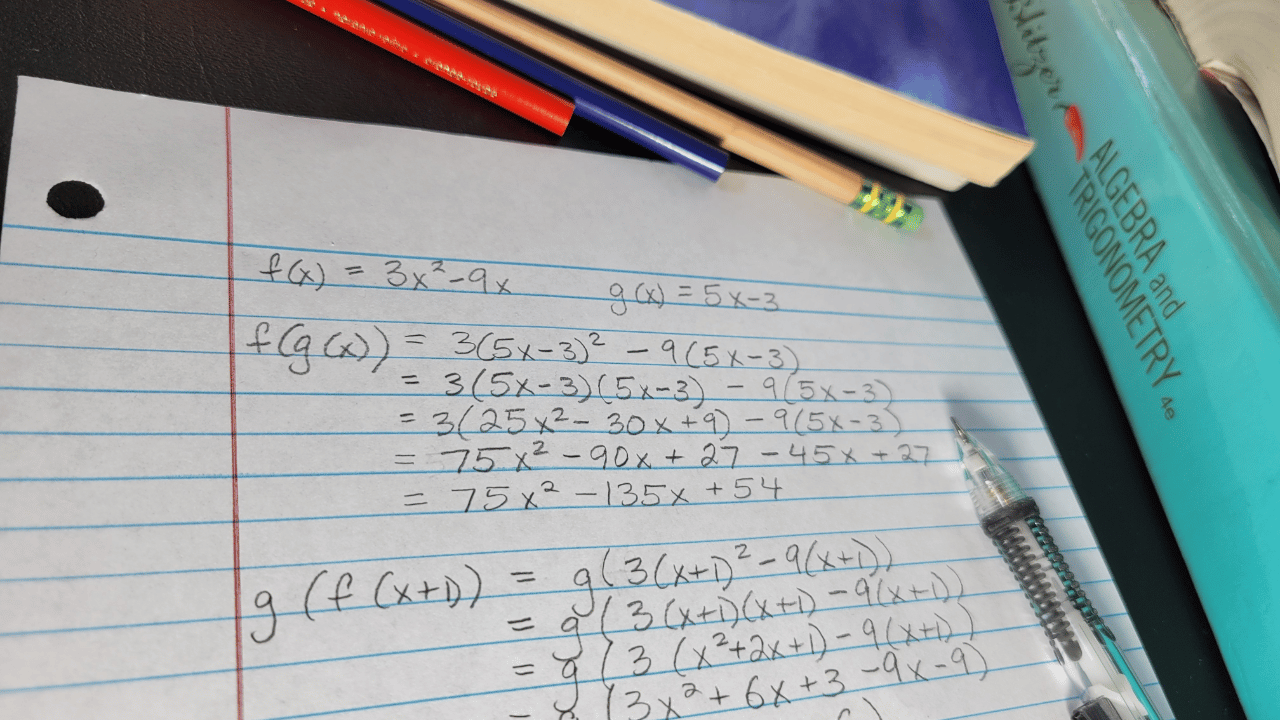 f(x) = 3x²-9x g(x) = 5x-3
f(g(x)) = 3(5x-3)² - 9(5x-3)
= 3(5x-3)(5x-3) - 9(5x-3)
= 3(25x² - 30x+9) - 9(5x-3)
= 75x² - 90x + 27 - 45x + 27
= 75x² - 135x + 54
g(f(x+1)) = g(3(x+1)² - 9(x+1))
= g(3(x+1)(x+1) - 9(x+1))
= g(3(x²+2x+1) - 9(x+1))
= g(3x² + 6x + 3 - 9x - 9)
ALGEBRA and
TRIGONOMETRY 4e